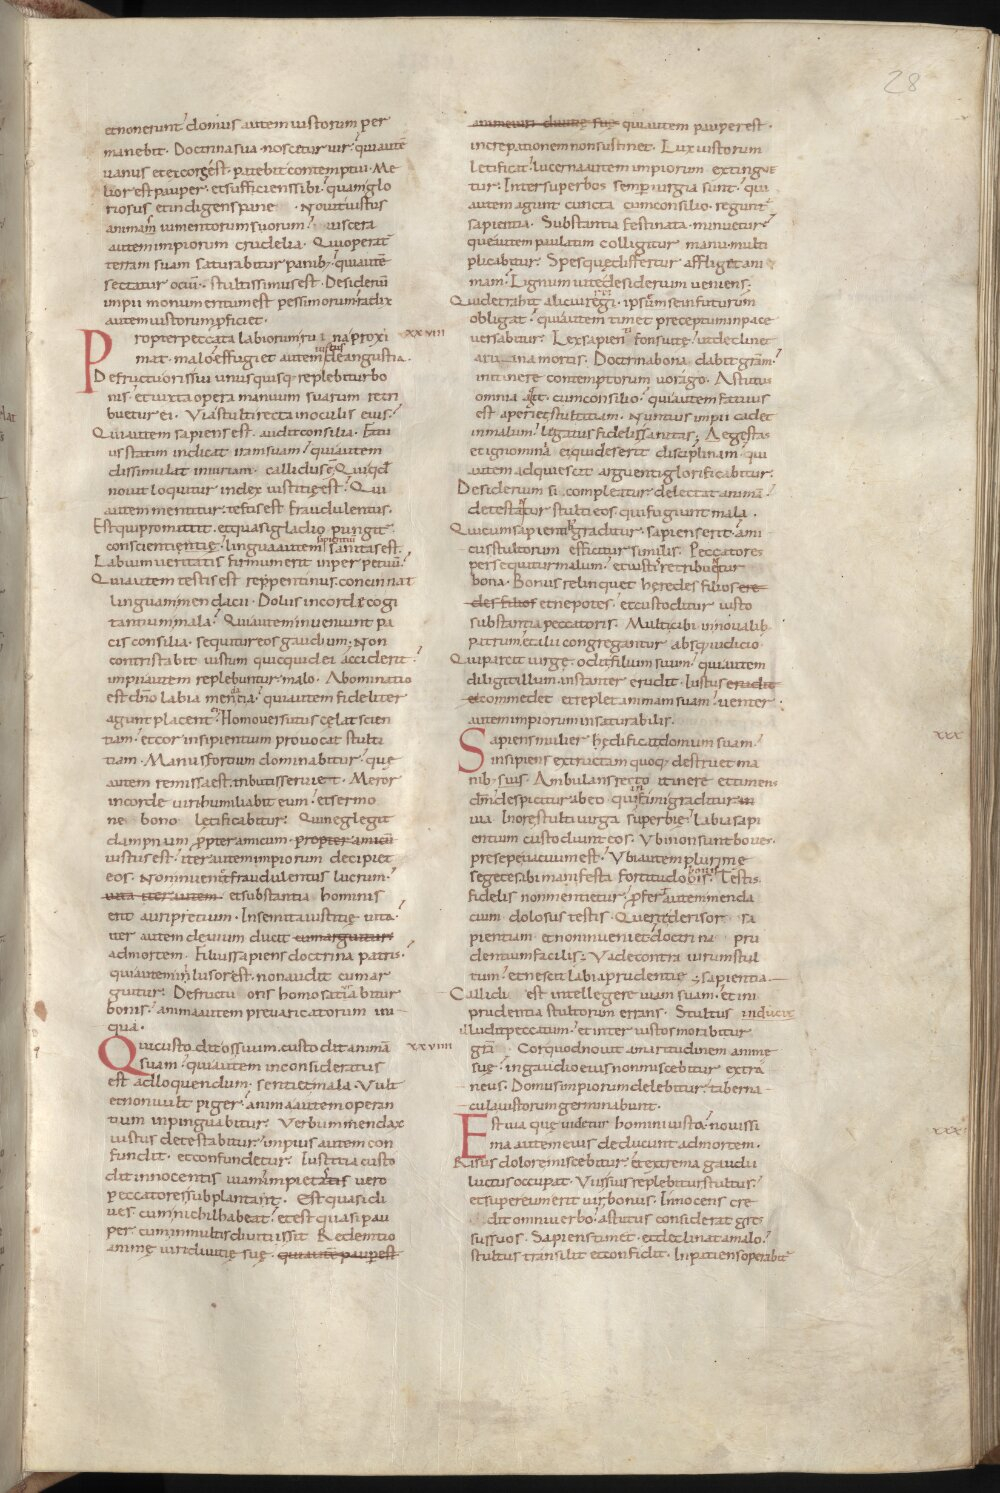 28
et non erunt domus autem iustorum per
manebit. Doctrina sua noscetur uir qui autē
uanus et excors ēst patebit contemptui. Me
lior est pauper et sufficiens sibi quam glo
riosus et indigens pane. Nouit iustus
animam iumentorum suorum uiscera
autem impiorum crudelia. Qui operat
terram suam saturabitur panib; qui autē
sectatur ociū. stultissimus est. Desideriū
impii monumentum est pessimorum radix
autem iustorum pficiet.
Propter peccata labiorum ruina proxi
XXVIII
mat malo effugiet autem iustus de angustia.
De fructu oris sui unusquisq; replebitur bo
nis et iuxta opera manuum suarum retri
buetur ei. Via stulti recta in oculis eius.
Qui autem sapiens est audit consilia. Fatu
us statim indicat iram suam qui autem
dissimulat iniuriam callidus ē. Qui qd
nouit loquitur index iustitię est. Qui
autem mentitur testis est fraudulentus.
Est qui promittit et quasi gladio pungit
conscientię lingua autem sapientiū sanitas est.
Labium ueritatis firmum erit in perpetuū
Qui autem testis est reppentinus concinnat
linguam mendacii. Dolus in corde cogi
tantium mala. Qui autem ineunt pa
cis consilia sequitur eos gaudium. Non
contristabit iustum quicquid ei acciderit
impii autem replebuntur malo. Abominatio
est dño labia mendacia qui autem fideliter
agunt placent ei Homo uersutus celat scien
tiam et cor insipientium prouocat stulti
tiam. Manus fortium dominabitur que
autem remissa est tributis seruiet. Meror
in corde uiri humiliabit eum et sermo
ne bono letificabitur. Qui neglegit
dampnum ppter amicum propter amicū
iustus est iter autem impiorum decipiet
eos. Non inueniet fraudulentus lucrum
uita iter autem et substantia hominis
erit auri pretium. In semita iustitię uita
iter autem deuium ducit cum arguitur
ad mortem. Filius sapiens doctrina patris
qui autem inlusor est non audit cum ar
guitur. De fructu oris homo satiabitur
bonis anima autem preuaricatorum ini
qua.
Qui custodit os suum custodit animā
XXVIIII
suam qui autem inconsideratus
est ad loquendum sentiet mala. Vult
et non uult piger anima autem operan
tium inpinguabitur. Verbum mendax
iustus detestabitur impius autem con
fundit et confundetur. Iustitia custo
dit innocentis uiam impietatis uero
peccatores subplantant. Est quasi di
ues cum nichil habeat et est quasi pau
per cum in multis diuitiis sit. Redemtio
animę uiri diuitię suę qui autē pauper est
anime uiri diuitię suę qui autem pauper est
increpationem non sustinet. Lux iustorum
letificat lucerna autem impiorum extingue
tur. Inter superbos semper iurgia sunt qui
autem agunt cuncta cum consilio regunt
sapientia. Substantia festinata minuetur
que autem paulatim colligitur manu multi
plicabitur. Spes que differtur affliget ani
mam. Lignum uitę desiderium ueniens.
Qui detrahit alicui rei ipsum se in futurum
obligat qui autem timet preceptum in pace
uersabitur. Lex sapientis fons uitę ut declinet
a ruina mortis. Doctrina bona dabit gratiam
in itinere contemptorum uorago. Astutus
omnia agit cum consilio qui autem fatuus
est aperiet stultitiam. Nuntius impii cadet
in malum legatus fidelis sanitas. Aegestas
et ignominia ei qui deserit disciplinam qui
autem adquiescit arguenti glorificabitur.
Desiderium si compleatur delectat animā
detestantur stulti eos qui fugiunt mala.
Qui cum sapientib; graditur sapiens erit ami
cus stultorum efficitur similis. Peccatores
persequitur malum et iustis retribuetur
bona. Bonus relinquet heredes filios ere
des filios et nepotes et custoditur iusto
substantia peccatoris. Multi cibi in noualib;
patrum et alii congregantur absq; iudicio
Qui parcit uirge odit filium suum qui autem
diligit illum instanter erudit. Iustus erudit
et commedet et replet animam suam uenter
autem impiorum insaturabilis.
Sapiens mulier hedificat domum suam
XXX
insipiens extructam quoq; destruet ma
nib; suis. Ambulans recto itinere et timens
dm̄ despicitur ab eo qui in fami graditur in
uia. In ore stulti uirga superbię labia sapi
entium custodiunt eos. Vbi non sunt boues
presepe uacuum est. Vbi autem plurime
segetes ibi manifesta fortitudo bouis. Testis
fidelis non mentietur pfert autem menda
cium dolosus testis. Querit derisor sa
pientiam et non inueniet doctrina pru
dentium facilis. Vade contra uirum stul
tum et nescit labia prudentie sapientia
Callidi est intellegere uiam suam et im
prudentia stultorum errans. Stultus inducit
illudit peccatum et inter iustos morabitur
grā. Cor quod nouit amaritudinem anime
suę in gaudio eius non miscebitur extra
neus. Domus impiorum delebitur taberna
cula iustorum germinabunt.
Est uia quę uidetur homini iusta nouissi
XXXI
ma autem eius deducunt ad mortem.
Risus dolore miscebitur et extrema gaudii
luctus occupat. Viis suis replebitur stultus
et super eum erit uir bonus. Innocens cre
dit omni uerbo astutus considerat gres
sus suos. Sapiens timet et declinat a malo
stultus transilit et confidit. Inpatiens operabit̄